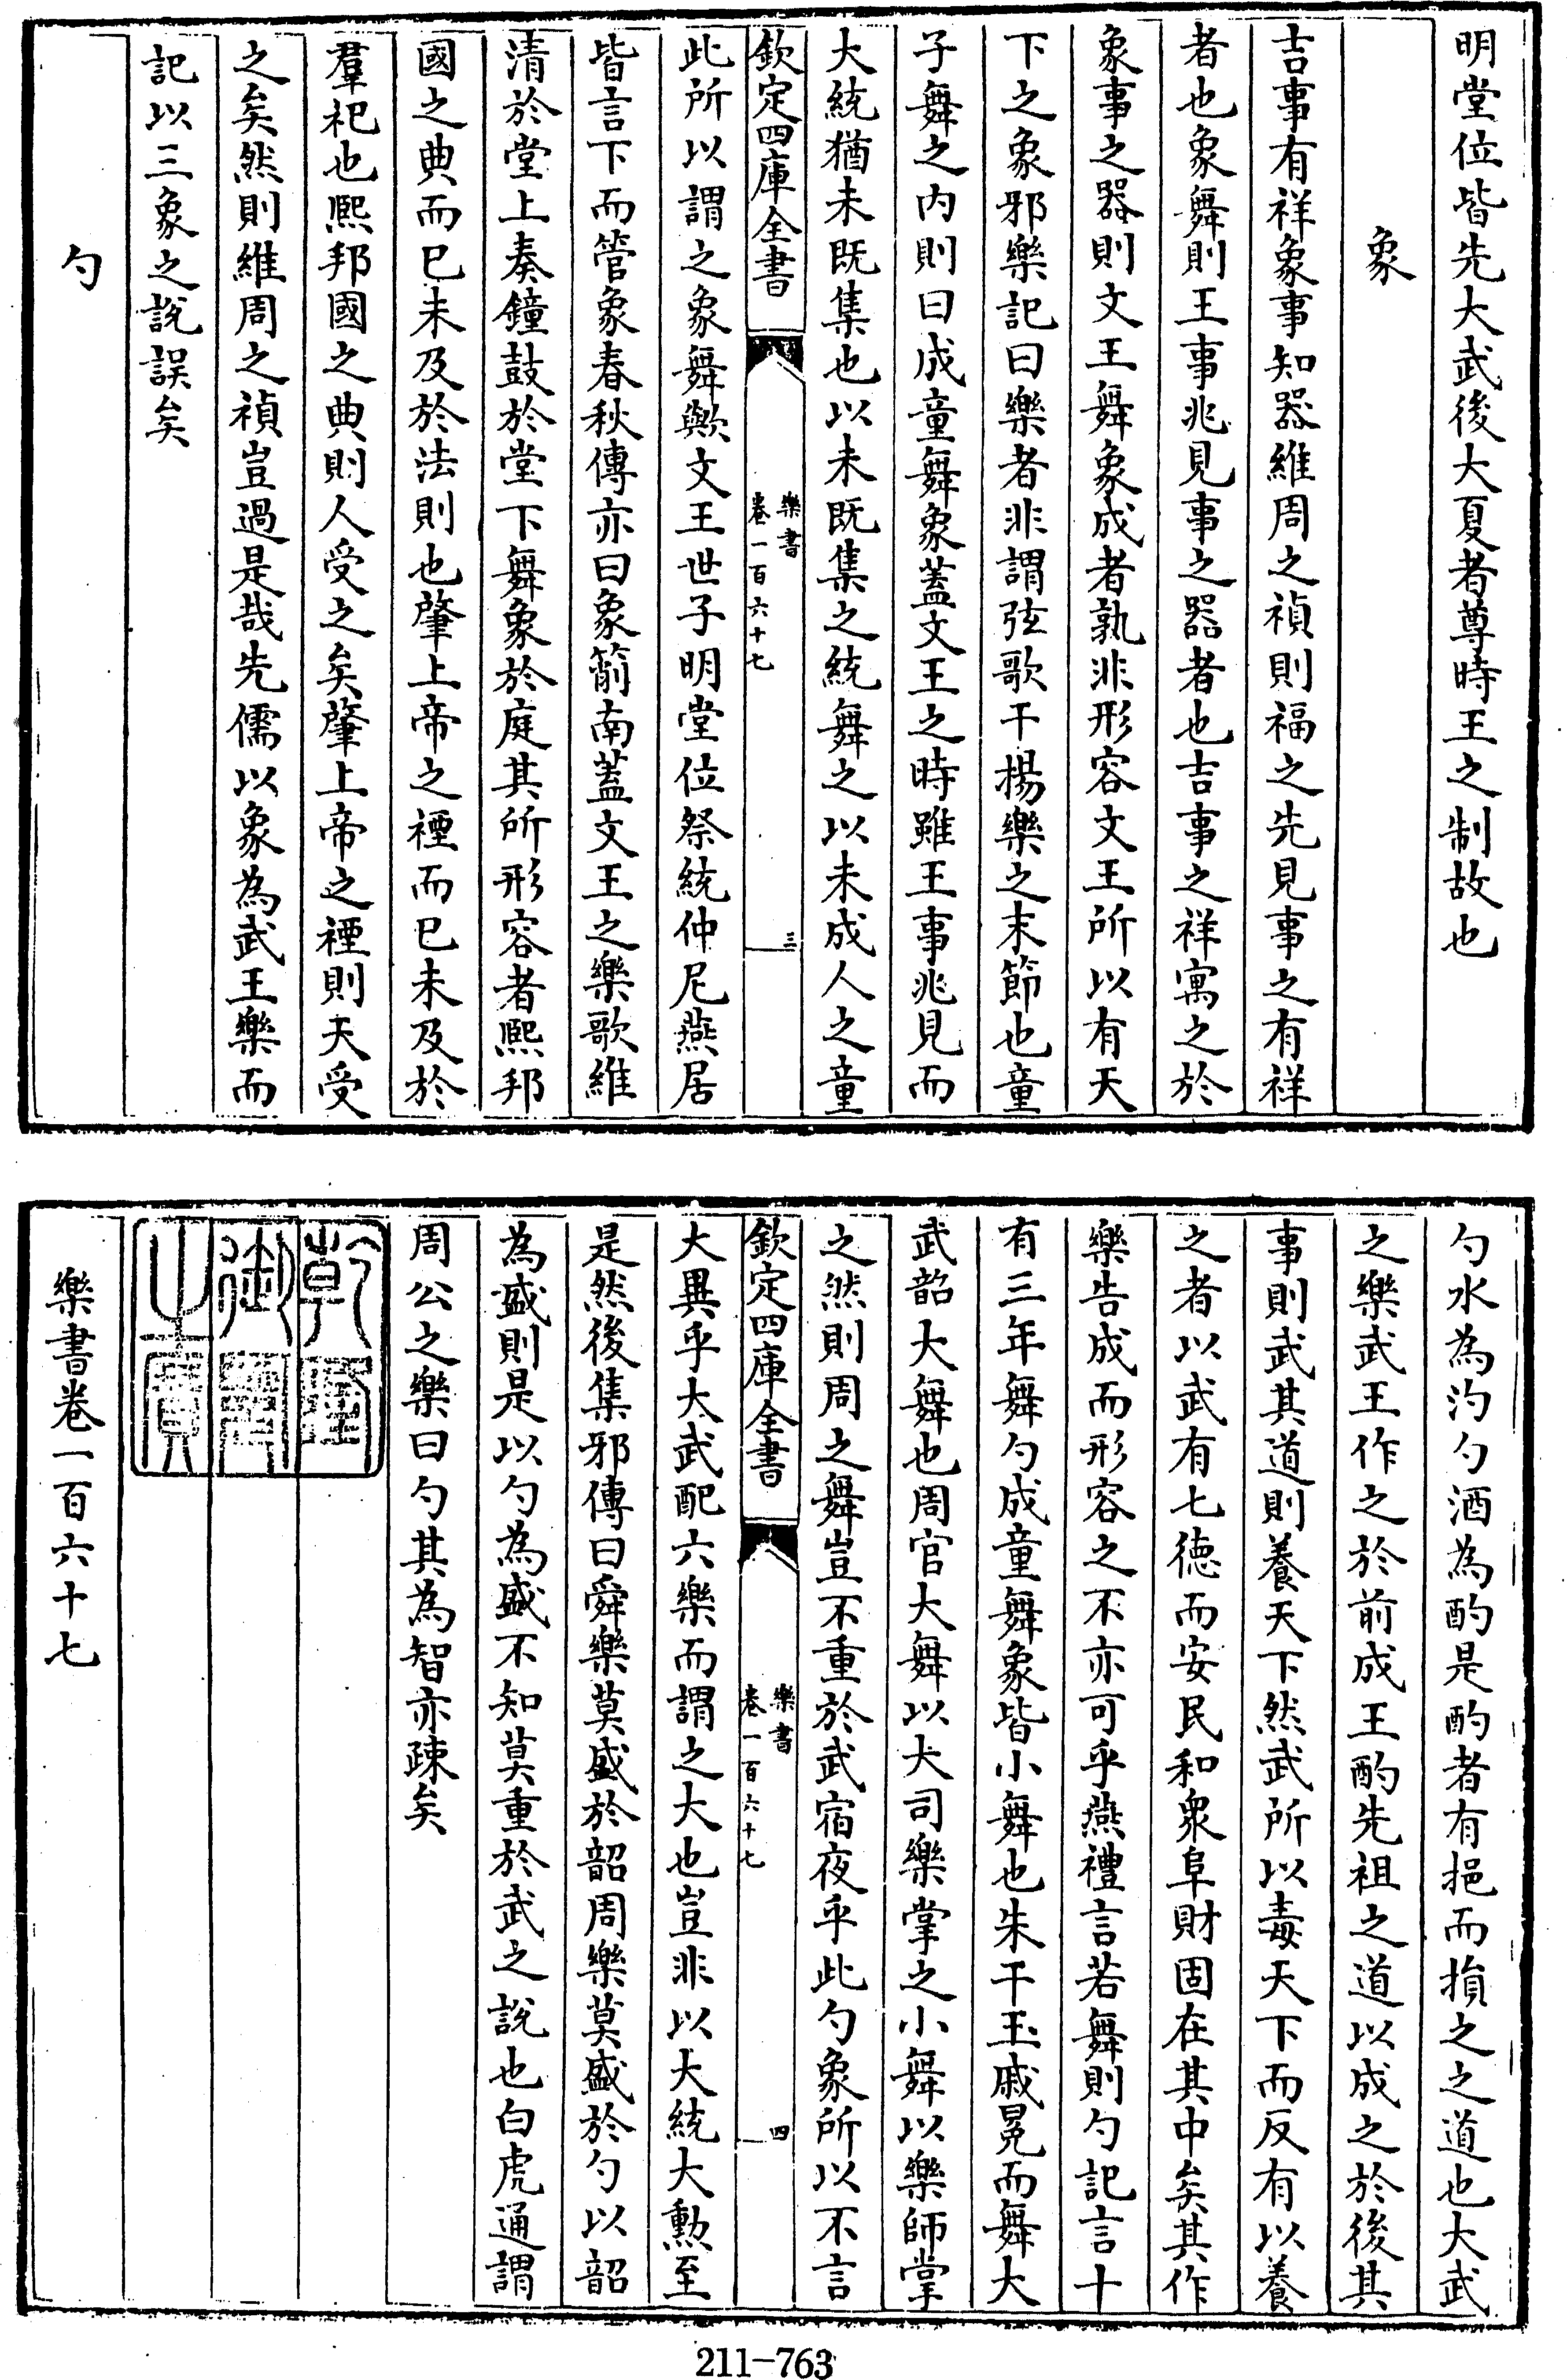 明堂位皆先大武後大夏者尊時王之制故也
象
吉事有祥象事知器維周之禎則福之先見事之有祥
者也象舞則王事兆見事之器者也吉事之祥寓之於
象事之器則文王舞象成者孰非形容文王所以有天
下之象邪樂記曰樂者非謂弦歌干揚樂之末節也童
子舞之内則曰成童舞象蓋文王之時雖王事兆見而
大統猶未既集也以未既集之統舞之以未成人之童
欽定四庫全書
樂書
卷一百六十七
三
此所以謂之象舞歟文王世子明堂位祭統仲尼燕居
皆言下而管象春秋傳亦曰象箾南蓋文王之樂歌維
清於堂上奏鐘鼓於堂下舞象於庭其所形容者熙邦
國之典而已未及於法則也肇上帝之禋而已未及於
羣祀也熙邦國之典則人受之矣肇上帝之禋則天受
之矣然則維周之禎豈過是哉先儒以象為武王樂而
記以三象之說誤矣
勺
勺水為汋勺酒為酌是酌者有挹而損之之道也大武
之樂武王作之於前成王酌先祖之道以成之於後其
事則武其道則養天下然武所以毒天下而反有以養
之者以武有七徳而安民和衆阜財固在其中矣其作
樂告成而形容之不亦可乎燕禮言若舞則勺記言十
有三年舞勺成童舞象皆小舞也朱干玉戚冕而舞大
武韶大舞也周官大舞以大司樂掌之小舞以樂師掌
之然則周之舞豈不重於武宿夜乎此勺象所以不言
欽定四庫全書
樂書
卷一百六十七
四
大異乎大武配六樂而謂之大也豈非以大統大勲至
是然後集邪傳曰舜樂莫盛於韶周樂莫盛於勺以韶
為盛則是以勺為盛不知莫重於武之說也白虎通謂
周公之樂曰勺其為智亦疎矣
乾隆
御覽
之寶
樂書卷一百六十七
211-763